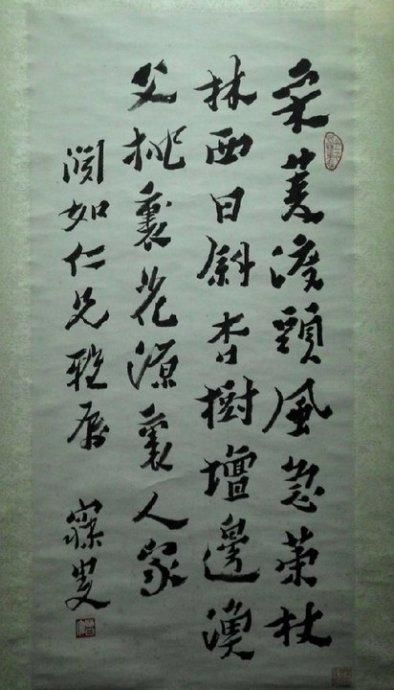 采菱渡頭風急策杖
林西日斜杏樹壇邊漁
父桃裏花源裏人家
如仁兄雅屬 寐叟